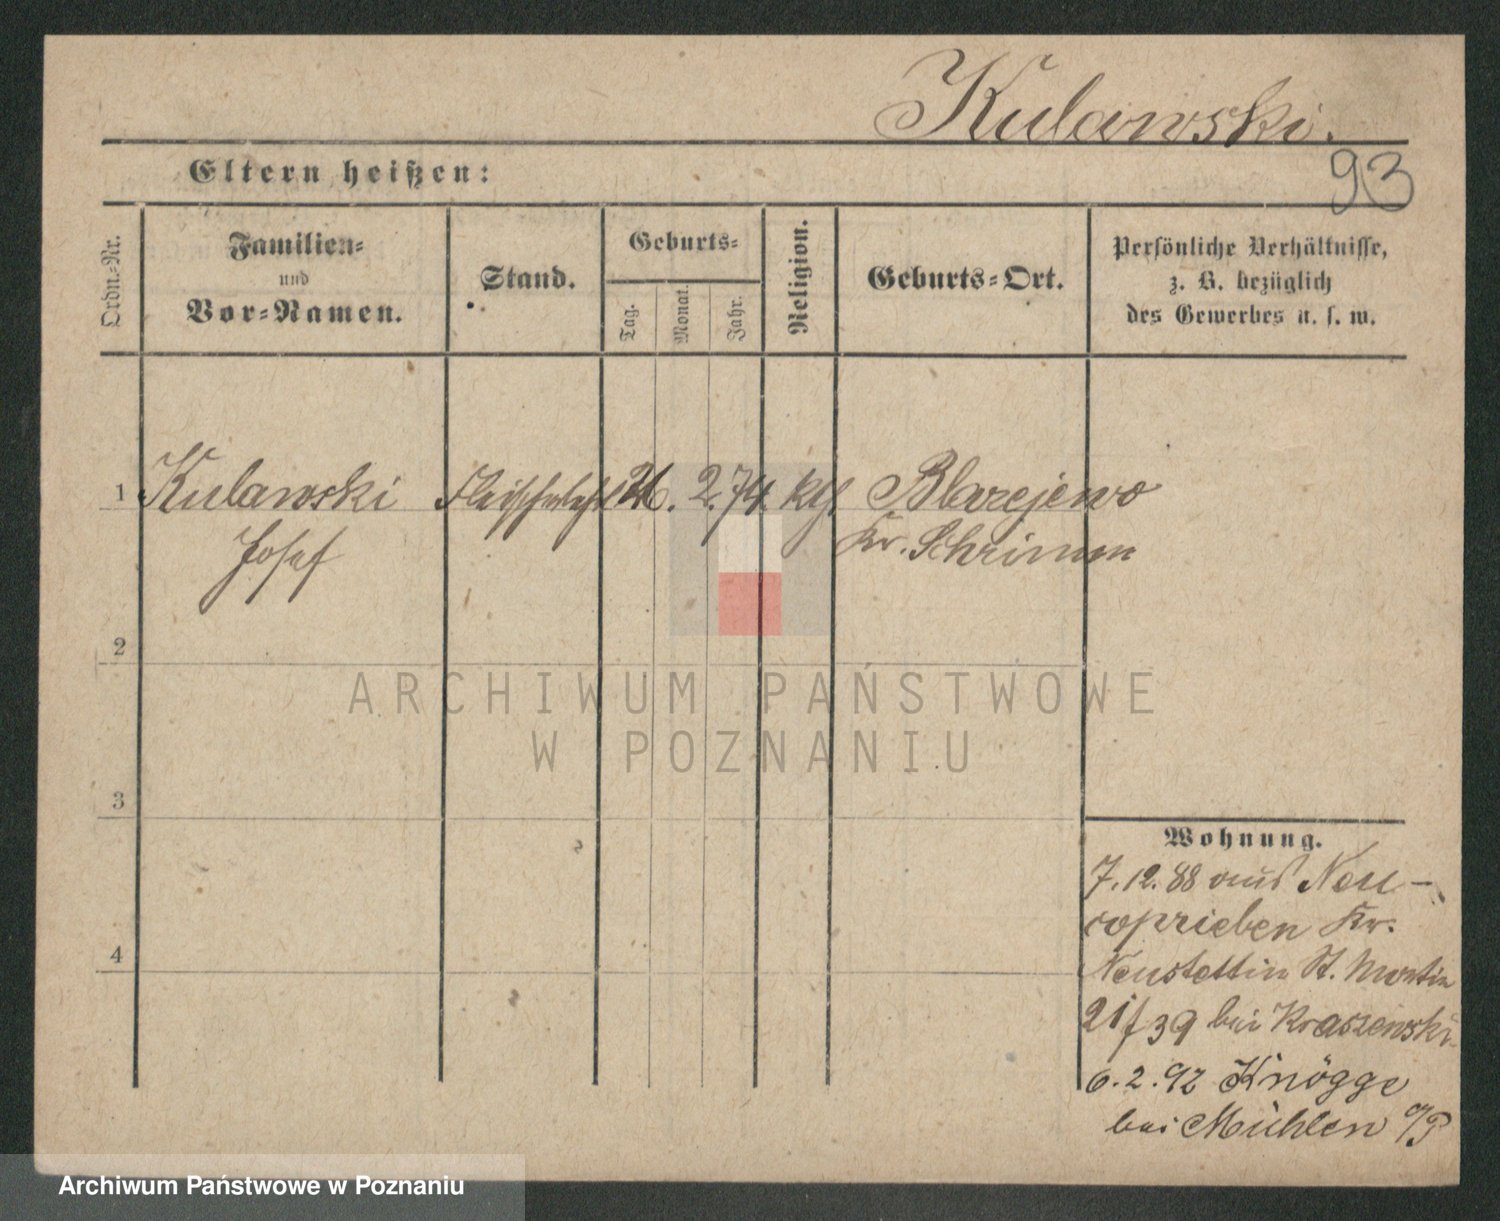 Kulawski.
93
Eltern heißen:
Ordn.-Nr.
Familien-
und
Vor-Namen.
Stand.
Geburts-
Tag.
Monat.
Jahr.
Religion.
Geburts-Ort.
Persönliche Verhältnisse,
z. B. bezüglich
des Gewerbes u. s. w.
1 Kulawski 2. 74. kth Blazejewo
Josef Kr. Schrimm
2
3
4
ARCHIWUM PAŃSTWOWE
W POZNANIU
Wohnung.
7. 12. 88 aus Neu-
Kr.
Neustettin St. Martin
21/39 bei Kraszewski
6. 2. 92 Knögge
bei Mühlen
Archiwum Państwowe w Poznaniu